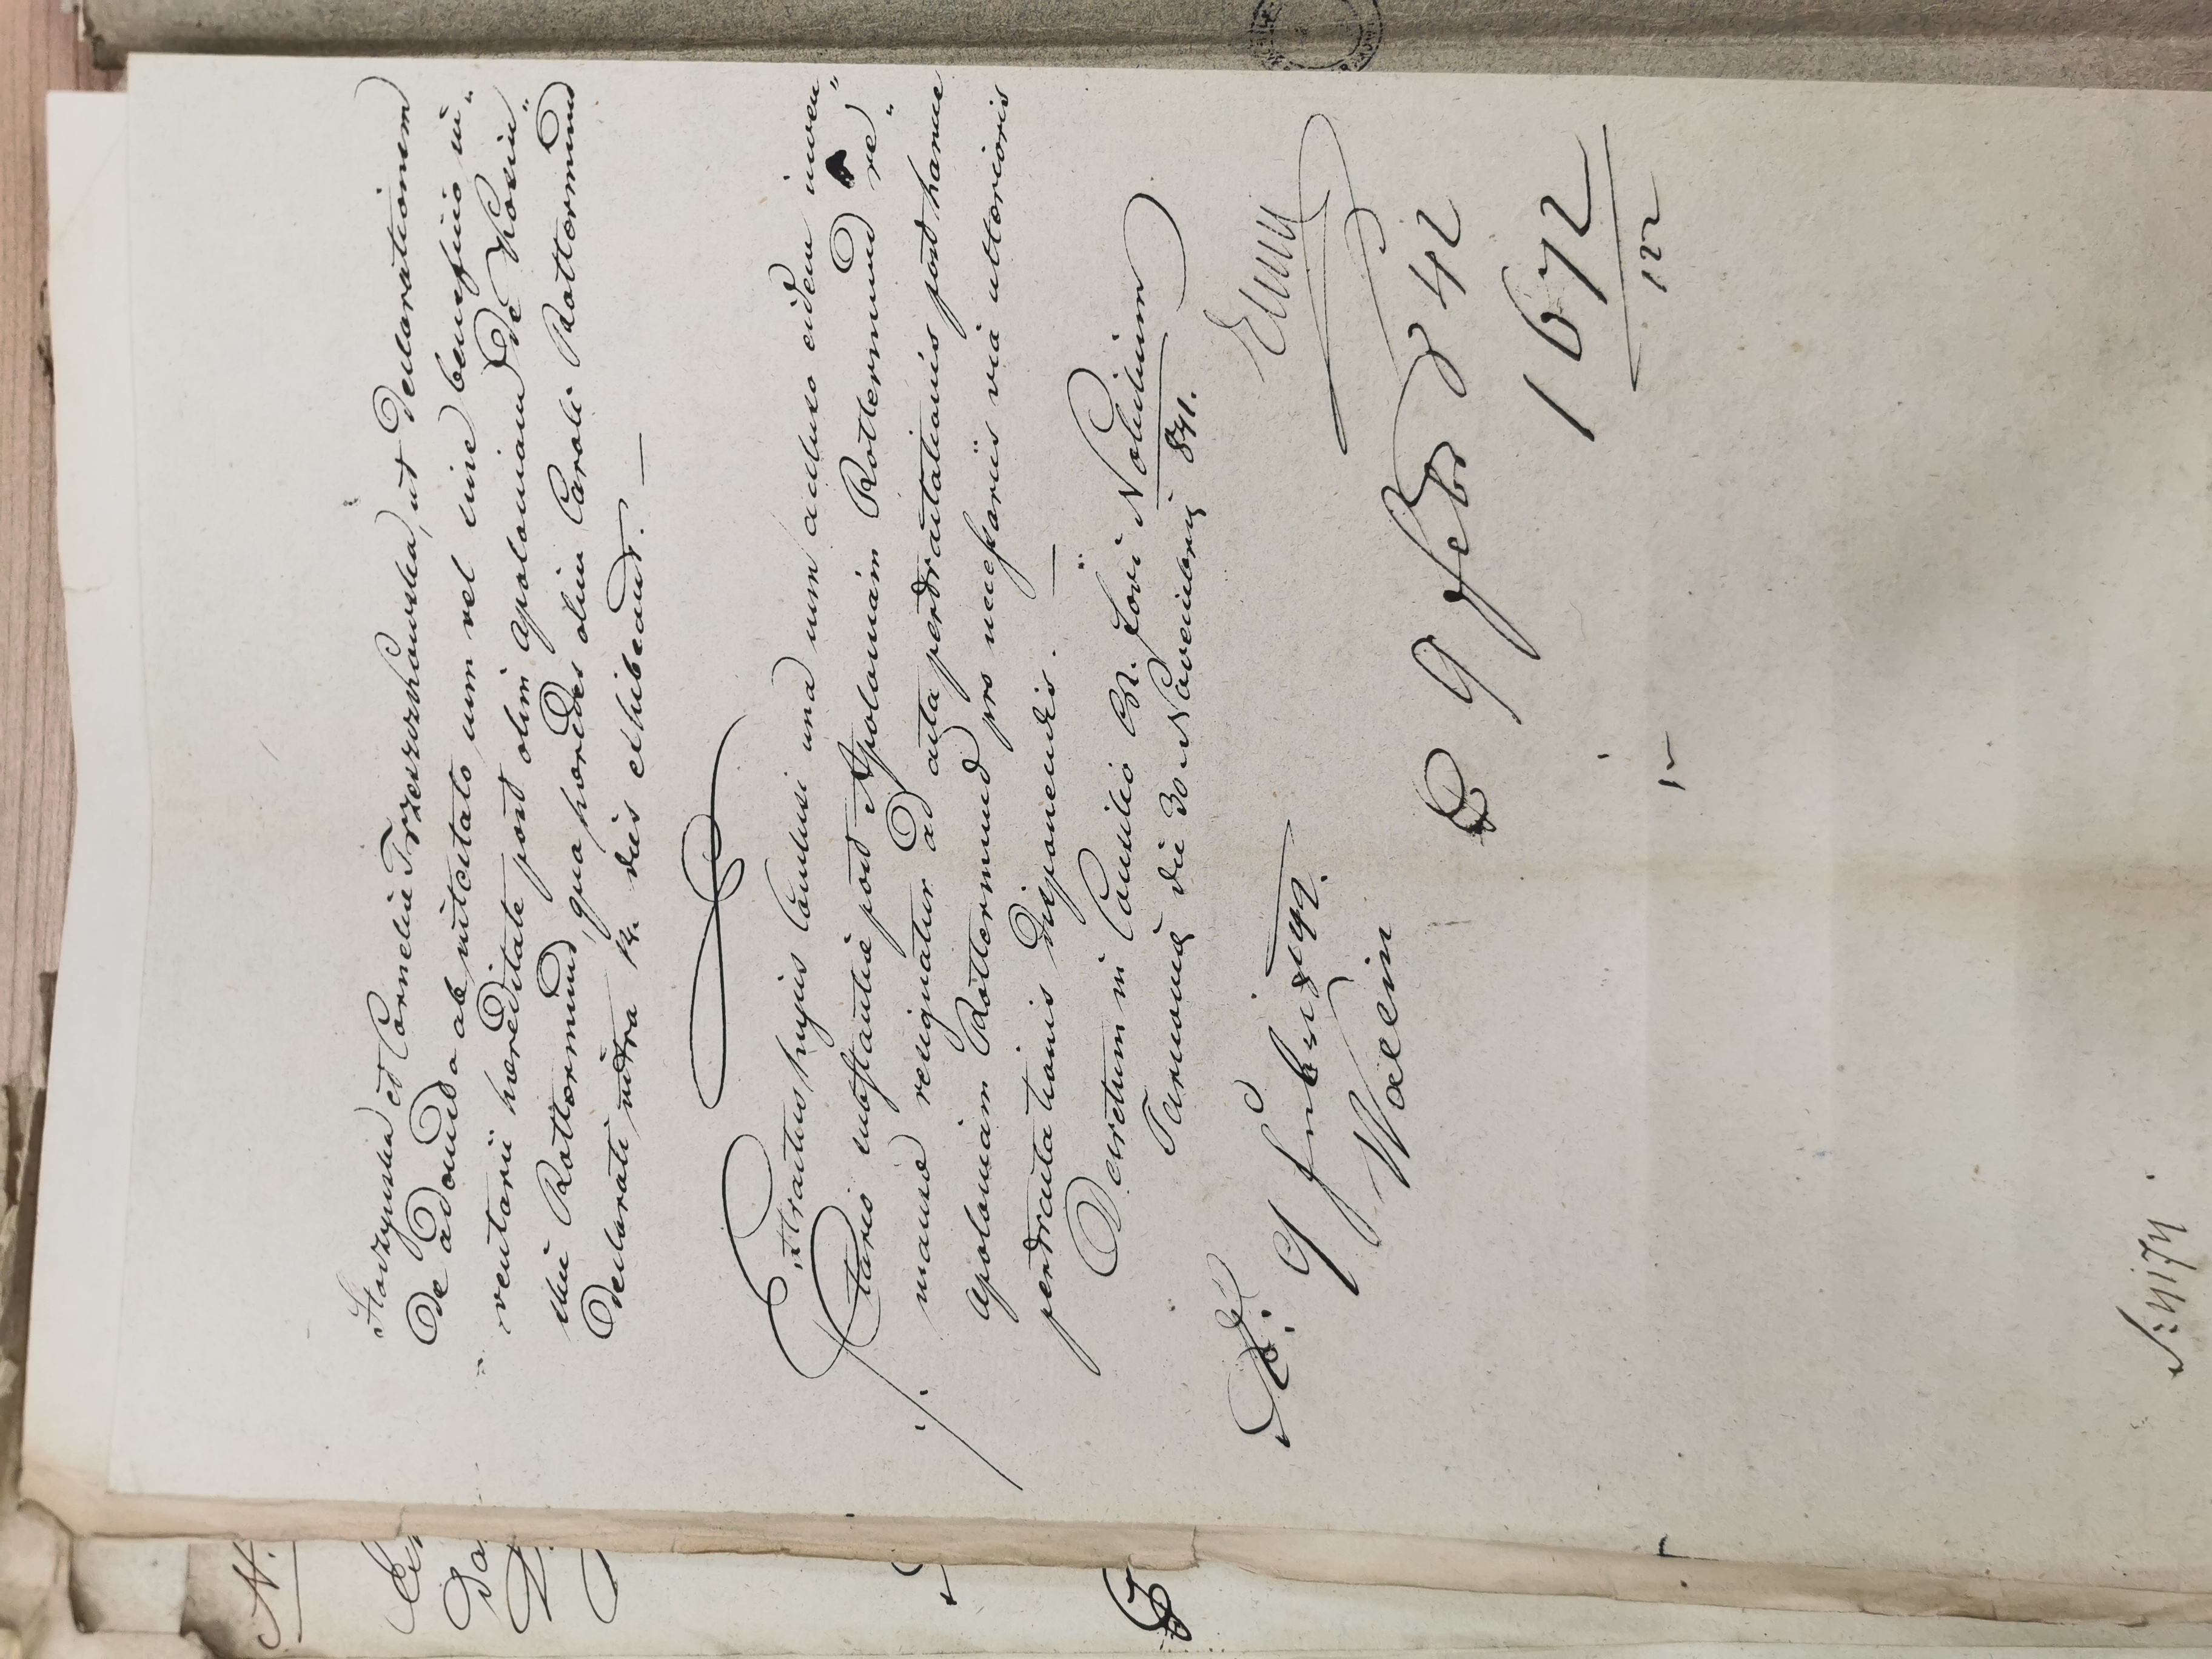 Starzynska et Cornelia Trzeszczkowska, ut Declarationem
de adeunda ab intestato cum vel sine beneficio in„
„ventarii hæreditate post olim Apoloniam de Kosin„
„skie Rottermund, qua hæredes olim Caroli Rottermund
declarati intra 14. dies exhibeant. —
Extractus hujus Conclusi una cum adluso eidem inven„
tario substantiæ post Apoloniam Rottermund re„
manse resignatur ad acta pertractationis post hance
Apoloniam Rottermund pro necessariis via ulterioris
pertractationis disponendis. —
Decretum in Consilio C. R. Fori Nobilium
Tarnoviæ die 30 Novembris 841.
9 febr 842
9 febr 842
1672
122
S: 4174.